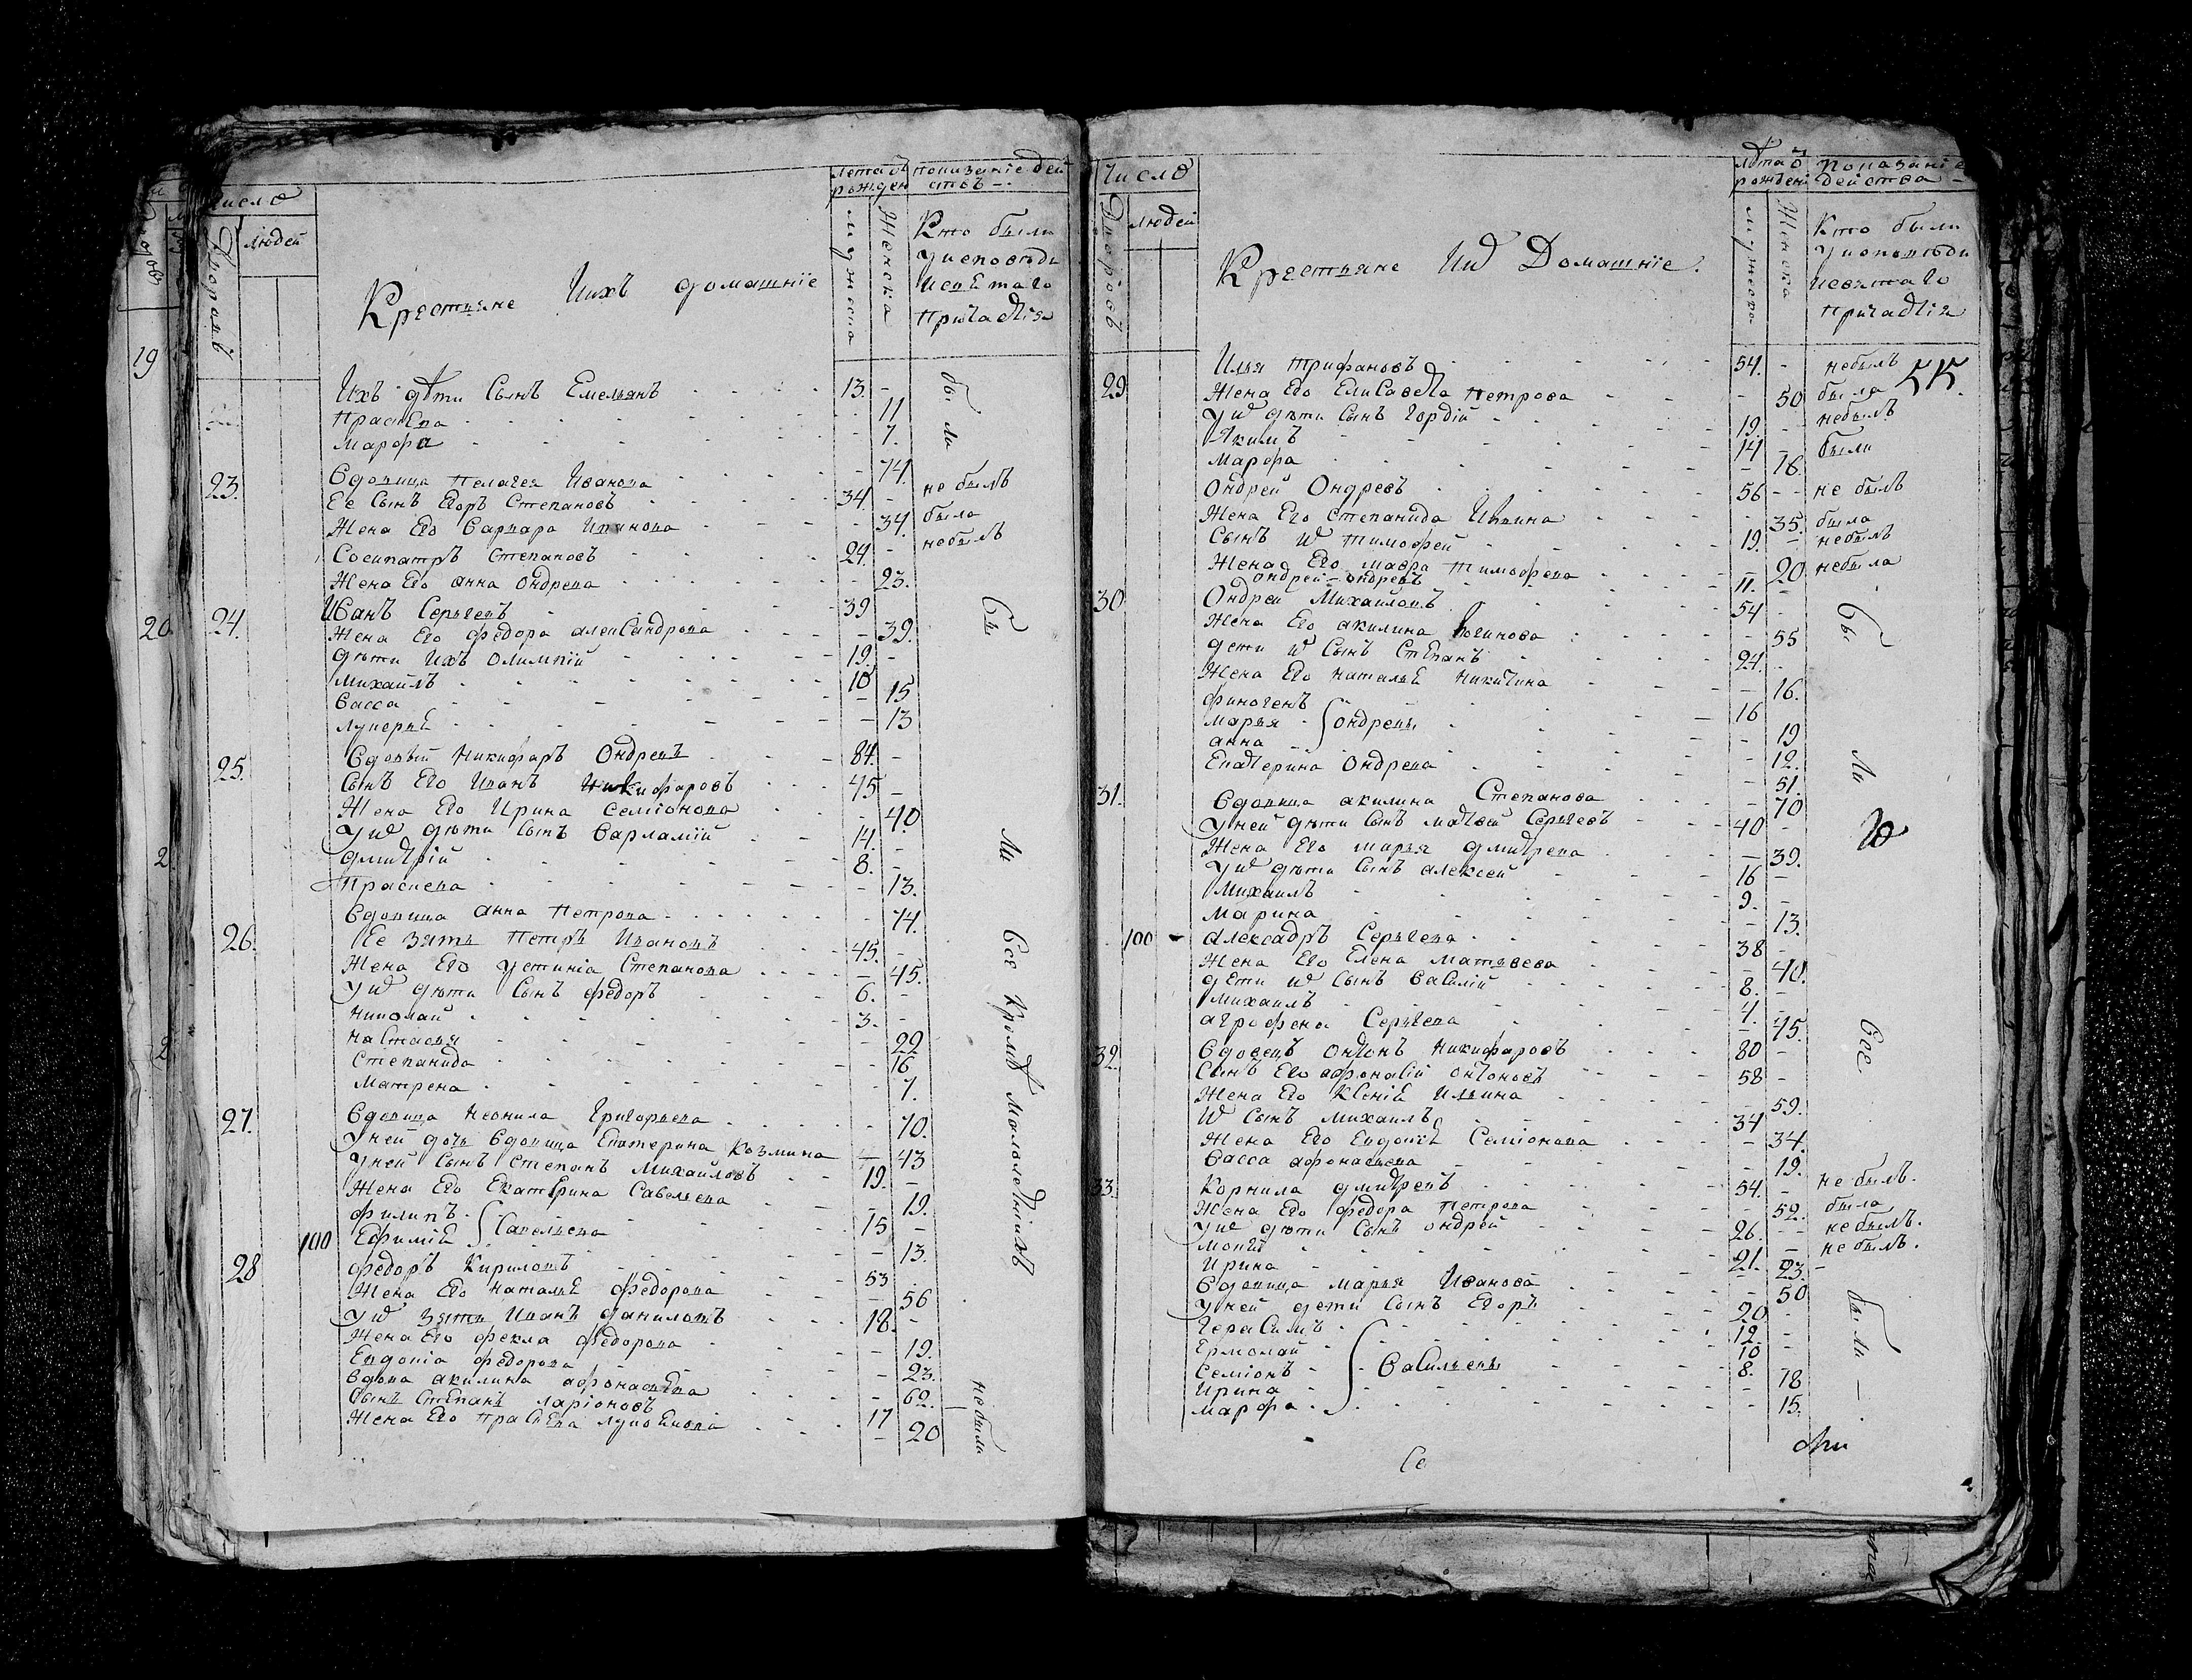 Число
Дворовъ
людей
Крестьяне Ихъ домашніе
Лета ѿ рожден
мужеска
Женска
показание дей
ствъ -.
Кто были
у исповѣди
и святаго
причастія
Ихъ дѣти Сынъ Емельянъ 13. -
Праскева - 11
Марфа - 7.
бы
ли
23. Вдовица Пелагея Иванова - 74.
Ее Сынъ Егоръ Степановъ 34. - не былъ
Жена Его Варвара Иванова - 34. была
Сосипатръ Степановъ 24. - небылъ
Жена Его анна Ондреева - 23.
24. Иванъ Сергеевъ 39
Жена Его федора александрова - 39.
дѣти Ихъ Олимпий 19. -
Михайлъ 10
Васса - 15
Лукерья - 13
25. Вдовый Никифаръ Ондреевъ 84. -
Сынъ Его Иванъ Никифаровъ 45 -
Жена Его Ирина Семіонова - 40.
У них дѣти Сынъ Варламій 14. -
дмитрій 8. -
Праскева - 13.
26. Вдовица анна Петрова - 74.
Ее зять Петръ Ивановъ 45. -
Жена Его Устинія Степанова - 45.
У них дѣти Сынъ федоръ 6. -
Николай 3. -
Настасья - 22
Степанида - 16
Матрена - 7.
27. Вдовица Неонила Григорьева - 70.
У ней дочь Вдовица Екатерина Козмина - 43
У ней Сынъ Степанъ Михайловъ 19. -
Жена Его Екатерина Савельева - 19.
филипъ 15 -
Ефимия Савельевы - 13.
100
28 федоръ Кириловъ 53
Жена Его Наталья федорова - 56
У них зять Иванъ даниловъ 18. -
Жена Его фекла федорова - 19.
Евдокіа федорова - 23.
вдова акилина афонасьева - 62.
Сынъ Степанъ Ларіоновъ 17
Жена Его Праскева - 20
небыли
Бы
ли
все кромѣ малолетнихъ
Число
Дворовъ
людей
Крестьяне Их Домашніе.
лѣта ѿ рожден
мужеска
Женска
Показаніе
действа -
Кто были
у исповѣди
и святаго
причастія
29 Илья трифановъ 54. - небылъ
Жена Его Елисавета Петрова - 50 была
У них дѣти Сынъ Гордій 19. - небылъ
Якимъ 14 - были
Марфа - 16.
Ондрей Ондреевъ 56 - - не былъ
Жена Его Степанида Ильина - 35. была
Сынъ их Тимофей 19. - небылъ
Жена Его мавра Тимофеева - 20 небыла
Ондрей Ондреевъ 11. -
30 Ондрей Михайловъ 54 -
Жена Его акилина Логинова - 55
дети их Сынъ Степанъ 24. -
Жена Его наталья Никитина - 16.
финогенъ 16
марья Ондреевы - 19
анна - 12.
Екатерина Ондреева - 51.
31. Вдовица акилина Степанова - 70
У ней дѣти Сынъ матвей Сергеевъ 40 -
Жена Его марья дмитрева - 39.
У них дѣти Сынъ алексей 16 -
Михаилъ 9. -
Марина - 13.
100 Александръ Сергеевъ 38 -
Жена Его Елена Матвѣева - 40.
дети их Сынъ Василій 8. -
михаилъ 4. -
аграфена Сергеева - 45.
32. Вдовецъ Онтонъ Никифаровъ 80 -
Сынъ Его афонасій онтоновъ 58 -
Жена Его Ксенія Ильина - 59.
Их Сынъ михаилъ 34
Жена Его Евдокія Семіонова - 34.
Васса афонасьева - 19.
33. Корнила дмитреевъ 54. - не былъ.
Жена Его федора Петрова - 52. была
У них дѣти Сынъ Ондрей 26. - - не былъ.
Мокей 21. - не былъ.
Ирина - 23. -
Вдовица Марья Иванова - 50
У ней дети Сынъ Егоръ 20 -
Герасимъ 12. -
Ермолай 10 -
Семіонъ Васильевы 8.
Ирина - 18
Марфа - 15.
Бы
ли
все
были -.
Се